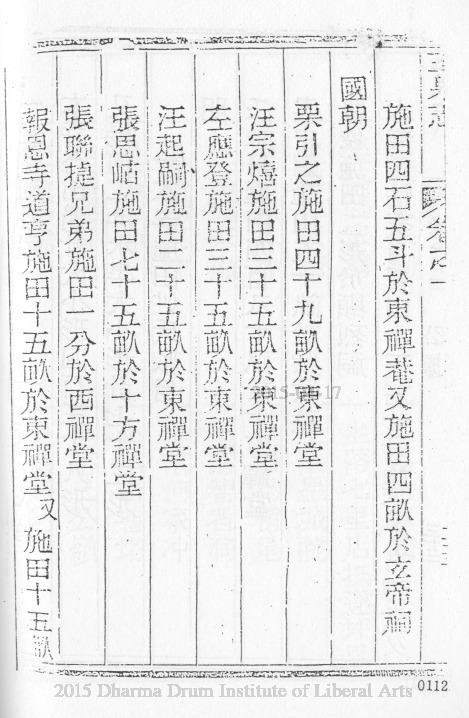 施田四石五斗於東禪菴又施田四畝於玄帝祠
國朝
栗引之施田四十九畝於東禪堂
汪宗熺施田三十五畝於東禪堂
左應登施田三十五畝於東禪堂
汪起嗣施田二十五畝於東禪堂
張思岵施田七十五畝於十方禪堂
張聯㨗兄弟施田一分於西禪堂
報恩寺道亨施田十五畝於東禪堂又施田十五畝
0112
2015 Dharma Drum Institute of Liberal Arts